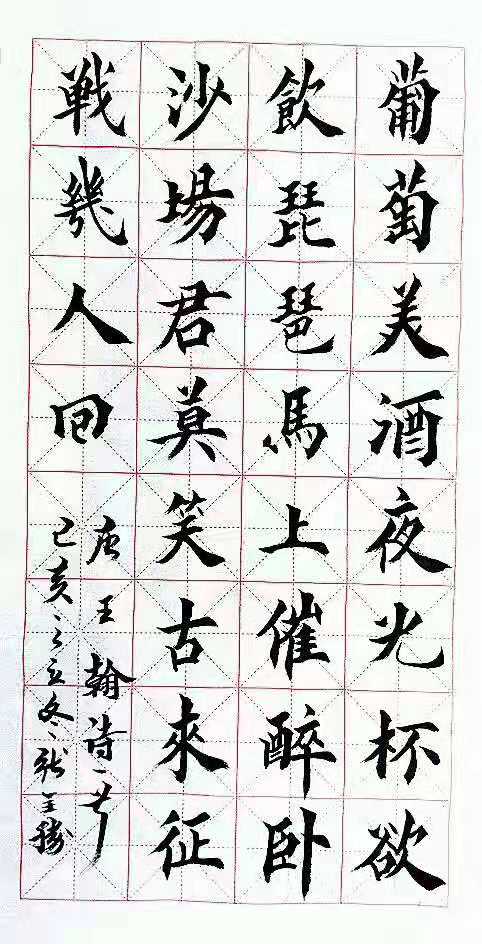 葡萄美酒夜光杯欲
飲琵琶馬上催醉卧
沙場君莫笑古來征
戰幾人回
唐王翰詩一首
己亥之立冬